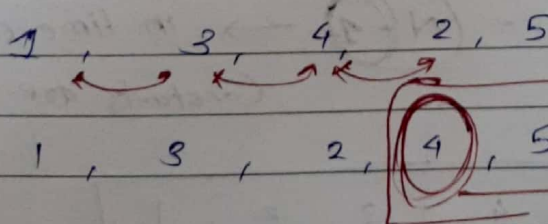 1, 3, 4, 2, 5
1, 3, 2, 4, 5